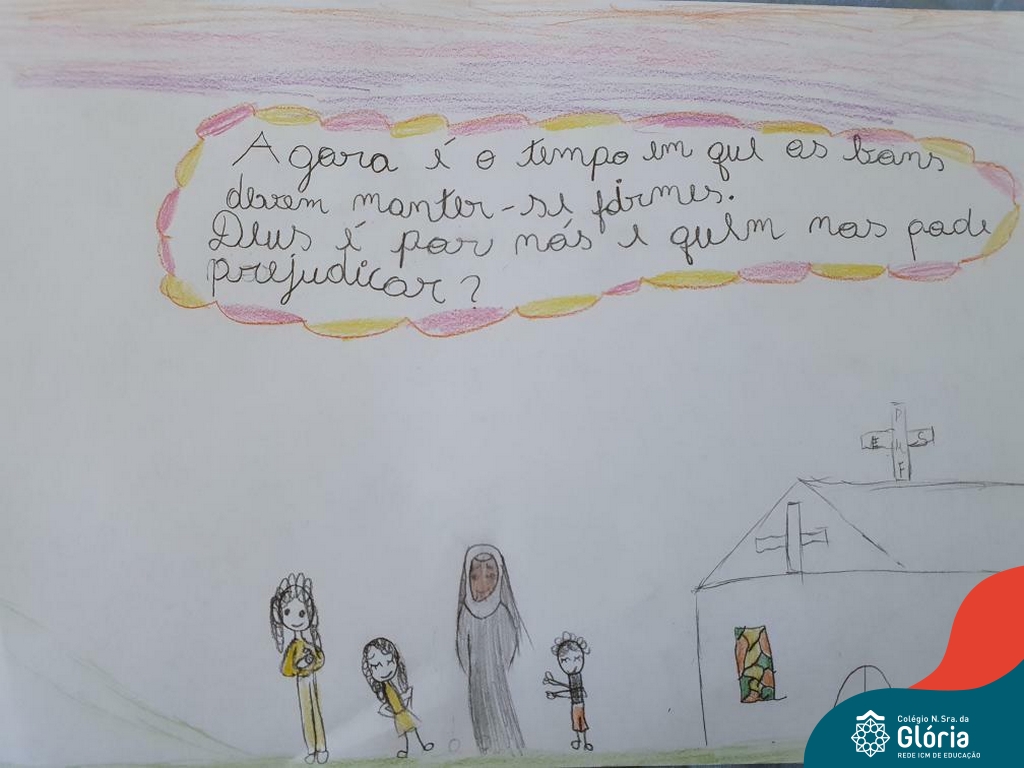 Agora é o tempo em que os bons
devem manter-se firmes.
Deus é por nós e quem nos pode
prejudicar?
P
E M S
F
Colégio N. Sra. da
Glória
REDE ICM DE EDUCAÇÃO